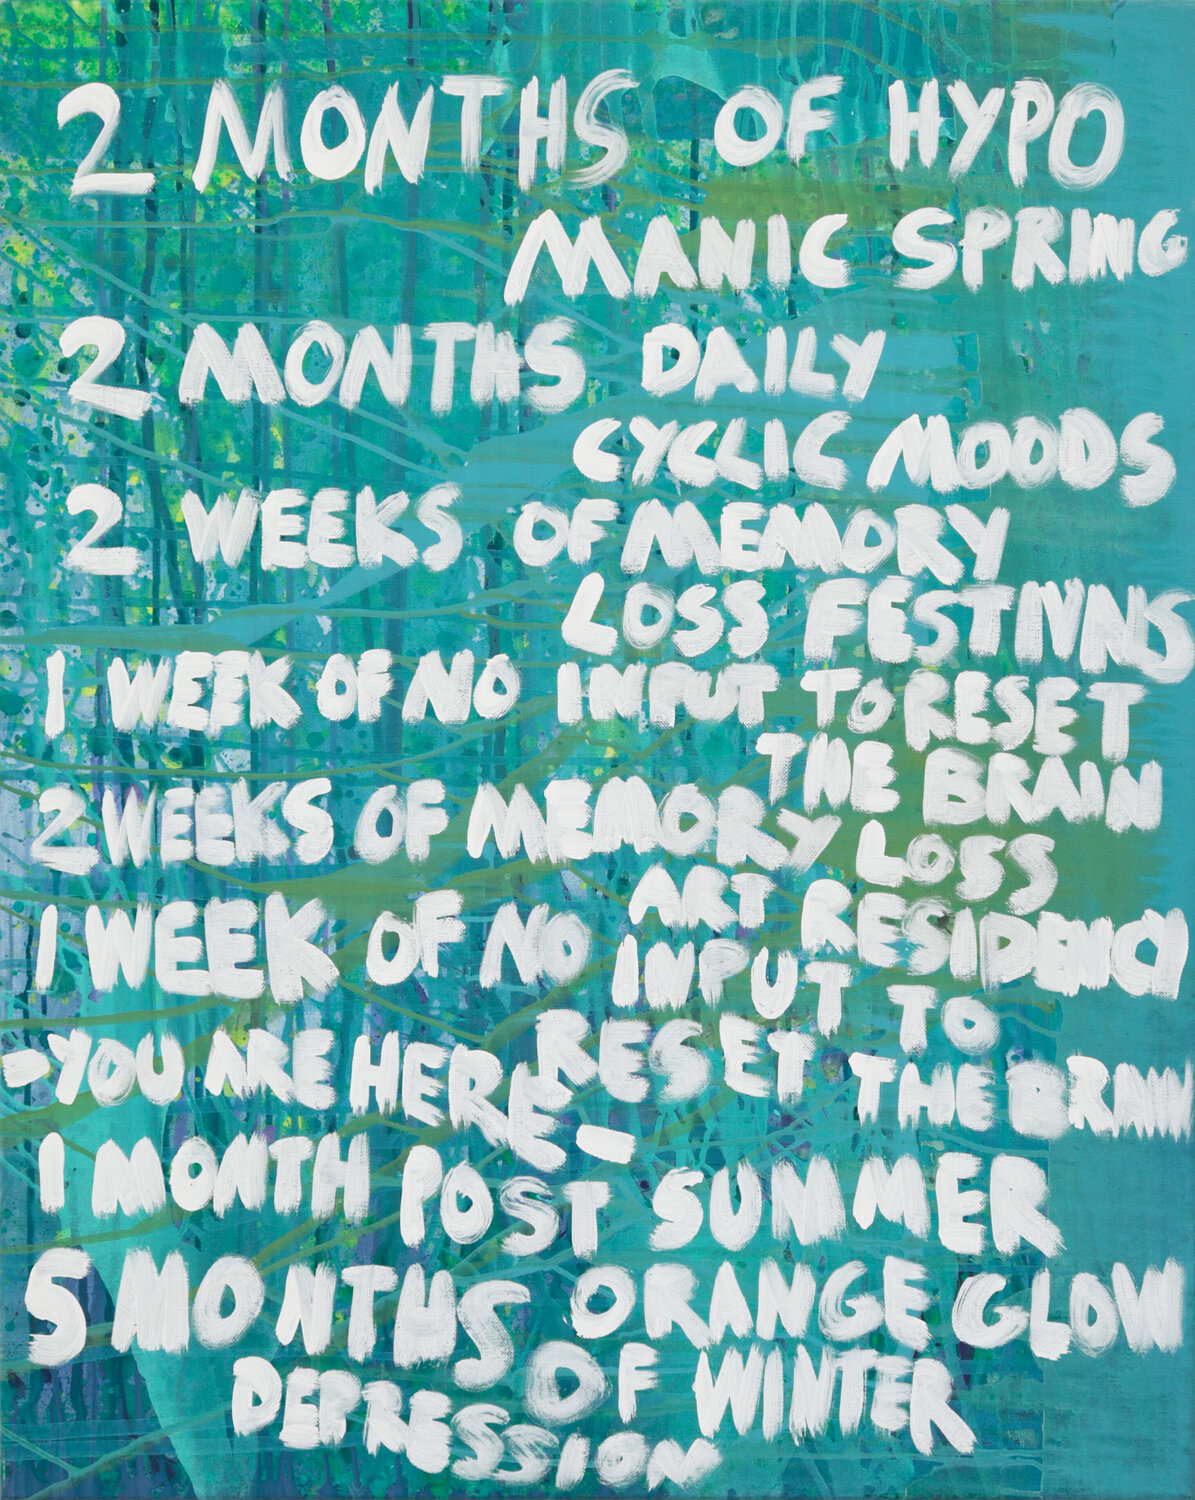 2 MONTHS OF HYPO
MANIC SPRING
2 MONTHS DAILY
CYCLIC MOODS
2 WEEKS OF MEMORY
LOSS FESTIVALS
1 WEEK OF NO INPUT TO RESET
THE BRAIN
2 WEEKS OF MEMORY LOSS
ART RESIDENCY
1 WEEK OF NO INPUT TO
RESET THE BRAIN
-YOU ARE HERE-
1 MONTH POST SUMMER
ORANGE GLOW
5 MONTHS OF WINTER
DEPRESSION